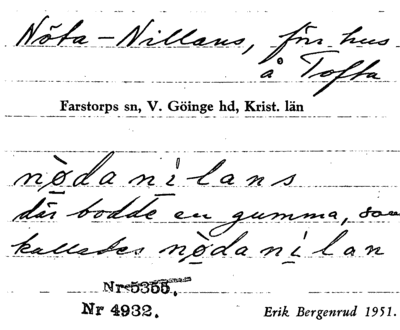 Nöta-Nillans, förr hus
å Tofta
Farstorps sn, V. Göinge hd, Krist. län
nø̀danìlans
där bodde en gumma, som
kallades nø̀danìlan
Nr 5355.
Nr 4932.
Erik Bergenrud 1951.